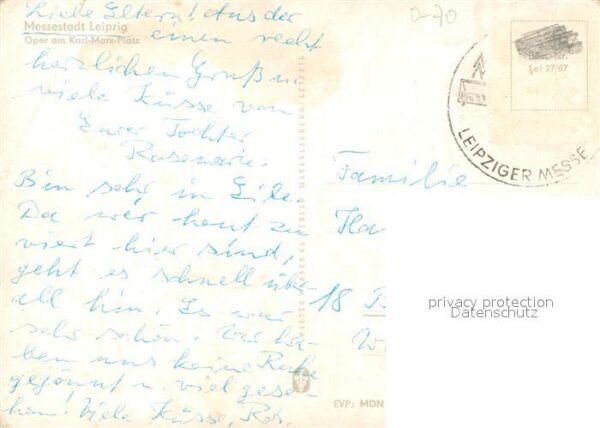 Liebe Eltern! Aus der
Messestadt Leipzig
Oper am Karl-Marx-Platz
einen recht
herzlichen Gruß u.
viele Küsse von
Eurer Tochter
Rosemarie.
Bin sehr in Eile.
Da wir heut zu
viert hier sind,
geht es schnell über-
all hin. Es war
sehr schön. Wir ha-
ben uns keine Ruhe
gegönnt u. viel gese-
hen! Viele Küsse, Ros.
EVP: MDN
0-70
LEIPZIGER MESSE
Familie
Ha
18
W
privacy protection
Datenschutz